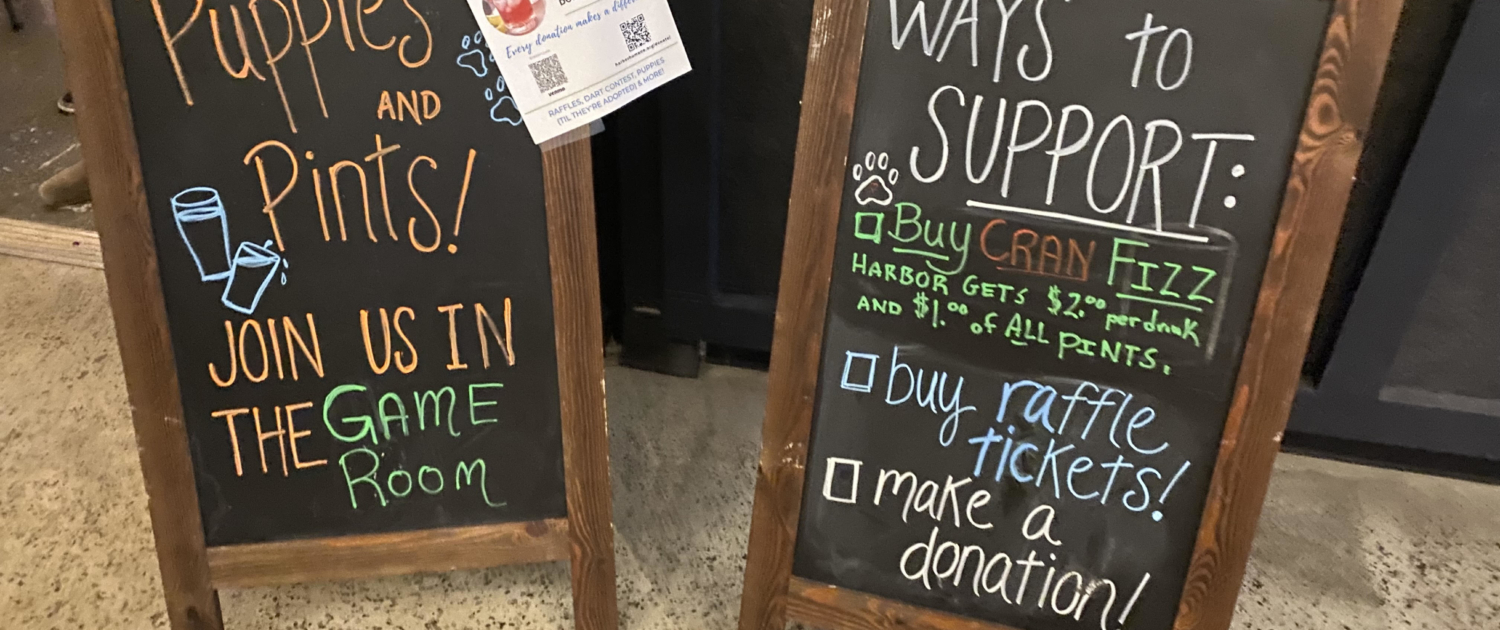 Puppies
AND
Pints!
JOIN US IN
THE GAME
Room
Every donation makes a differ
RAFFLES, DART CONTEST, PUPPIES
(TIL THEY'RE ADOPTED) & MORE!
WAYS to
SUPPORT:
Buy CRAN FIZZ
HARBOR GETS $2.00 per drink
AND $1.00 of ALL PINTS.
buy raffle
tickets!
make a
donation!